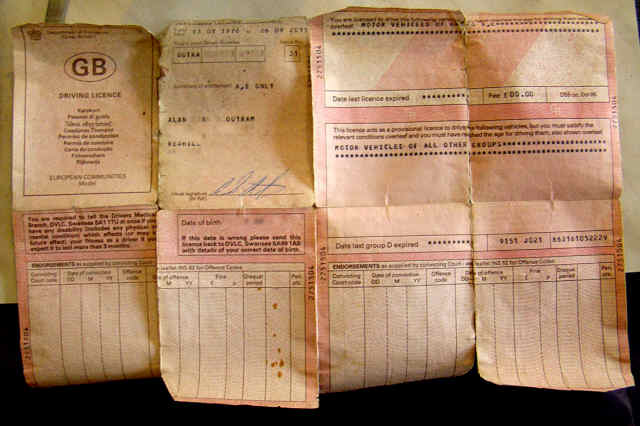 Department of Transport
GB
DRIVING LICENCE
Kørekort
Permiso di guida
Ceadúnas Tiomána
Permiso de conducción
Permis de conduire
Carta de condução
Führerschein
Rijbewijs
EUROPEAN COMMUNITIES
Model
OUTRA
31
A,E ONLY
ALAN OUTRAM
REDHILL
Usual signature
You are required to tell the Drivers Medical
Branch, DVLC, Swansea SA1 1TU at once if you
have any disability (includes any physical or
mental condition) which affects (or may in
future affect) your fitness as a driver if you
expect it to last more than 3 months.
Date of birth
If this date is wrong please send this
licence back to DVLC, Swansea SA99 1AB
with details of your correct date of birth.
ENDORSEMENTS as supplied by convicting Court - see leaflet INS 62 for Offence Codes
Convicting
Court code
Date of conviction
DD M YY
Offence
code
Date of offence
M YY
Fine
£ p
Disqual
period
Pen.
pts.
2751504
You are licensed to drive
MOTOR VEHICLES OF
Date last licence expired ***********
Fee £00.00
This licence acts as a provisional licence to drive the following vehicles, but you must satisfy the
relevant conditions overleaf and you must have reached the age for driving them, also shown overleaf.
MOTOR VEHICLES OF ALL OTHER GROUPS
Date last group D expired ***********
9151 2021
2751504
ENDORSEMENTS as supplied by convicting Court - see leaflet INS 62 for Offence Codes
Convicting
Court code
Date of conviction
DD M YY
Offence
code
Date of offence
DD M YY
Fine
£ p
Disqual
period
Pen.
pts.
2751504